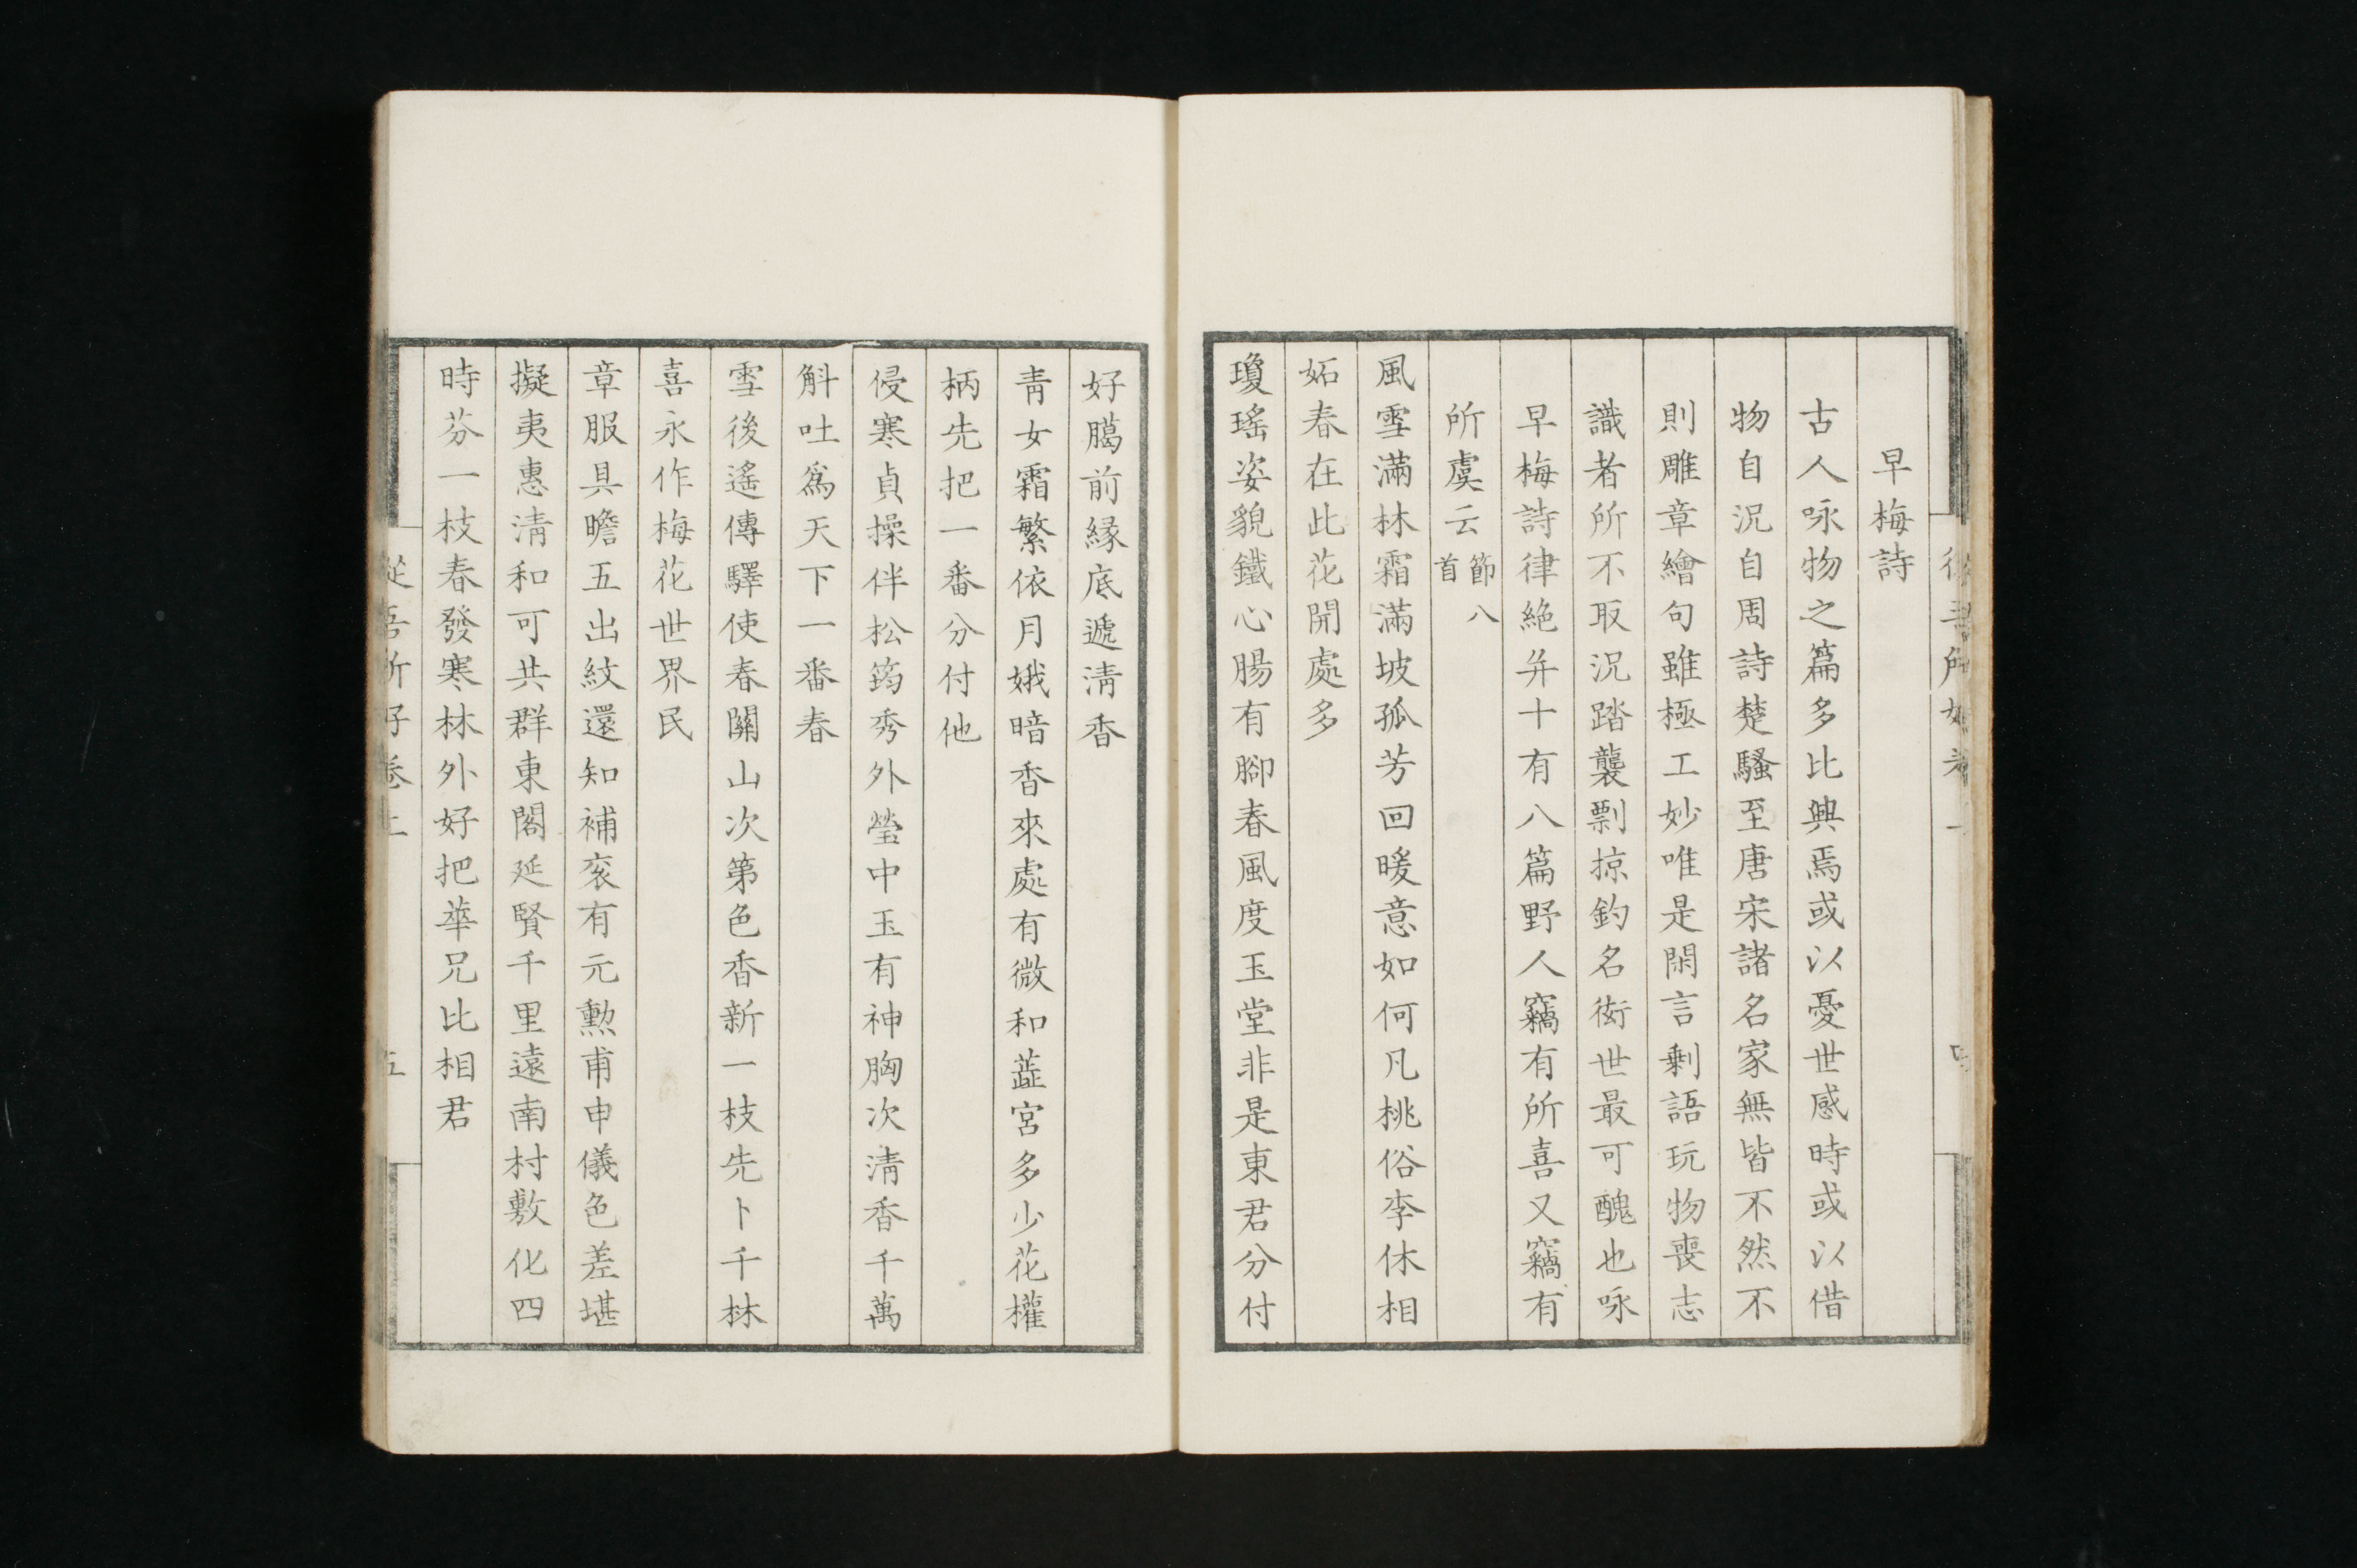 早梅詩
古人咏物之篇多比興焉或以憂世感時或以借
物自況自周詩楚騷至唐宋諸名家無皆不然不
則雕章繪句雖極工妙唯是閑言剩語玩物喪志
識者所不取況踏襲剽掠釣名衒世最可醜也咏
早梅詩律絶并十有八篇野人竊有所喜又竊有
所虞云節八首
風雪滿林霜滿坡孤芳回暖意如何凡桃俗李休相
妬春在此花開處多
瓊瑤姿貌鐵心腸有腳春風度玉堂非是東君分付
好臈前緣底遞淸香
靑女霜繁依月娥暗香來處有微和蘂宮多少花權
柄先把一番分付他
侵寒貞操伴松筠秀外瑩中玉有神胸次淸香千萬
斛吐爲天下一番春
雪後遙傳驛使春關山次第色香新一枝先卜千林
喜永作梅花世界民
章服具瞻五出紋還知補衮有元勲甫申儀色差堪
擬夷惠淸和可共群東閣延賢千里遠南村敷化四
時芬一枝春發寒林外好把華兄比相君
從吾所好卷上
五